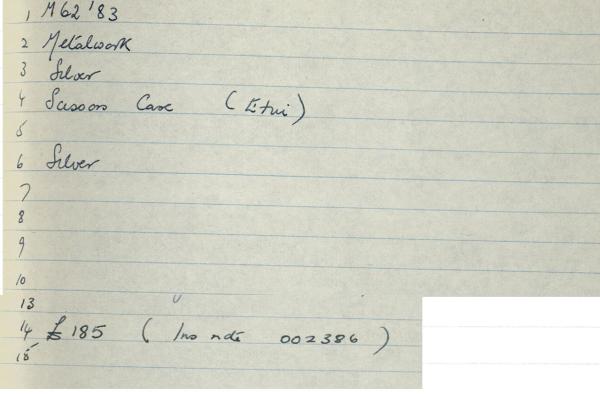 1 M62 '83
2 Metalwork
3 Silver
4 Scissors Case (Etui)
5
6 Silver
7
8
9
10
13
14 £185 (Ins note 002386)
15